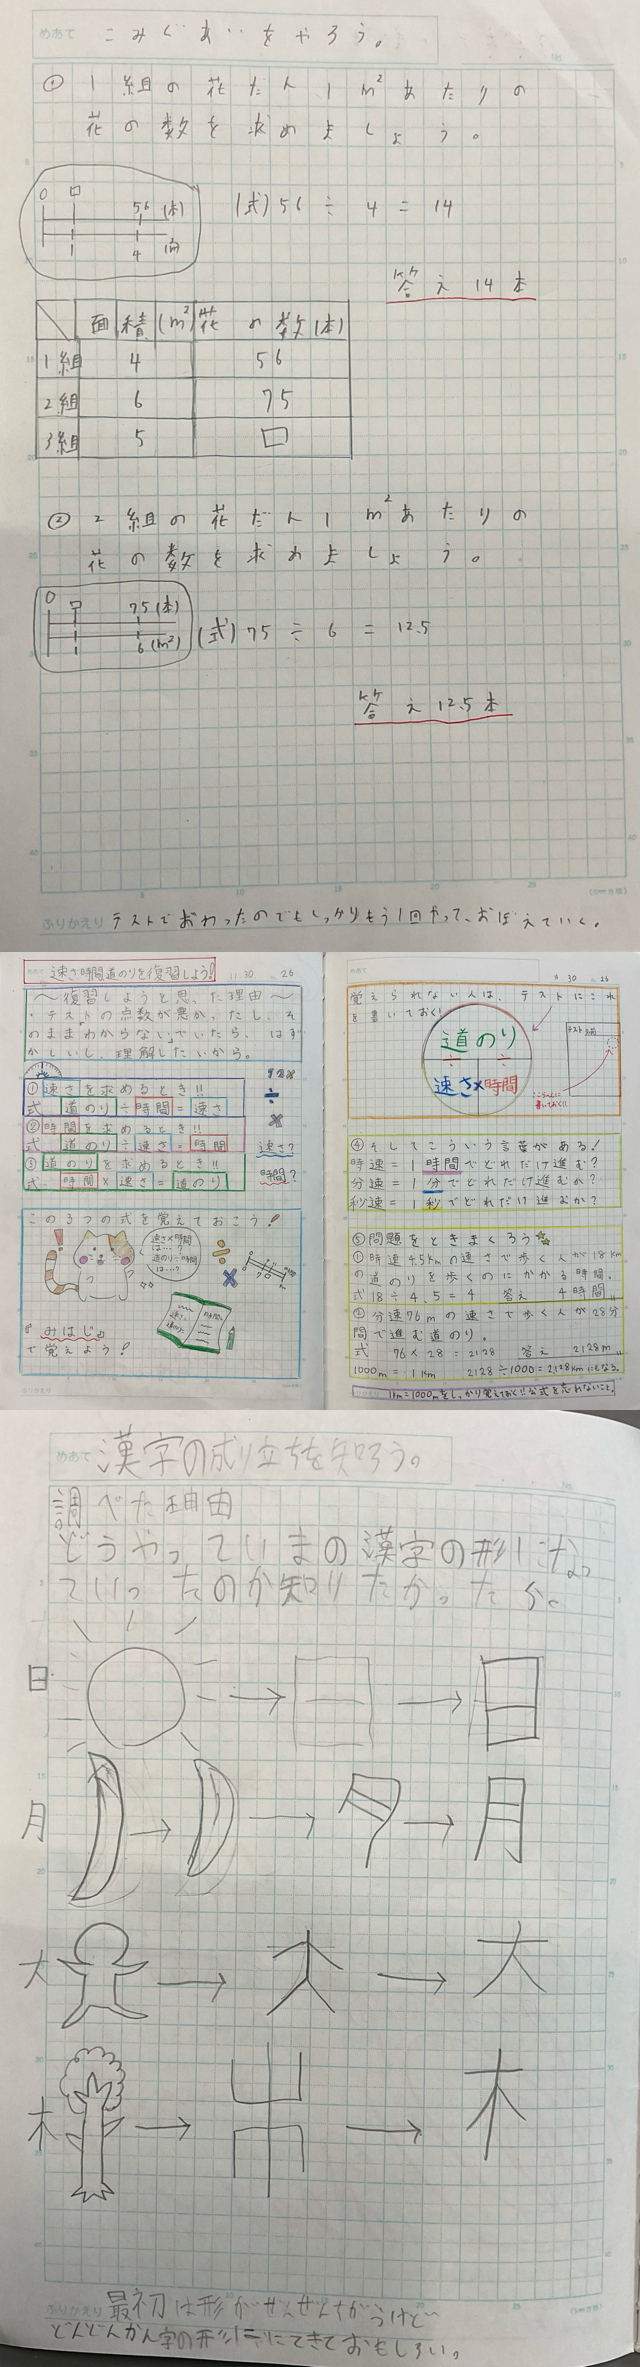 めあて こみぐあいをやろう。
① 1組の花だん1m²あたりの
花の数を求めましょう。
0 □ 56 (本)
1 4 (m²)
(式) 56 ÷ 4 = 14
答え 14本
面積(m²) 花の数(本)
1組 4 56
2組 6 75
3組 5 □
② 2組の花だん1m²あたりの
花の数を求めましょう。
0 □ 75 (本)
1 6 (m²)
(式) 75 ÷ 6 = 12.5
答え 12.5本
ふりかえり テストでおわったのでもしっかりもう1回やって、おぼえていく。
めあて 速さ時間道のりを復習しよう! 11 30 26
〜復習しようと思った理由〜
・テストの点数が悪かったし、そ
のままわからないでいたら、はず
かしいし、理解したいから。
①速さを求めるとき!!
式 道のり÷時間=速さ
②時間を求めるとき!!
式 道のり÷速さ=時間
③道のりを求めるとき!!
式 時間×速さ=道のり
÷
×
速さ?
時間?
この3つの式を覚えておこう!
速さ×時間
は…?
道のり÷時間
は…?
÷
×
『みはじ』
で覚えよう!
めあて 11 30 26
覚えられない人は、テストにこれ
を書いておく!
道のり
÷ ÷
速さ×時間
テスト 名前
ここらへんに
書いておく!!
④そしてこういう言葉がある!
時速=1時間でどれだけ進む?
分速=1分でどれだけ進むか?
秒速=1秒でどれだけ進むか?
⑤問題をときまくろう
①時速4.5kmの速さで歩く人が18km
の道のりを歩くのにかかる時間。
式 18÷4.5=4 答え 4時間
②分速76mの速さで歩く人が28分
間で進む道のり。
式 76×28=2128 答え 2128m
1000m=1km 2128÷1000=2.128kmにもなる。
ふりかえり 1km=1000mをしっかり覚えておく!!公式を忘れないこと。
めあて 漢字の成り立ちを知ろう。
調べた理由
どうやっていまの漢字の形になっ
ていったのか知りたかったから。
日 → 日 → 日
月 → → → 月
大 → → 大
木 → → 木
ふりかえり 最初は形がぜんぜんちがうけど
どんどんかん字の形ににてきておもしろい。